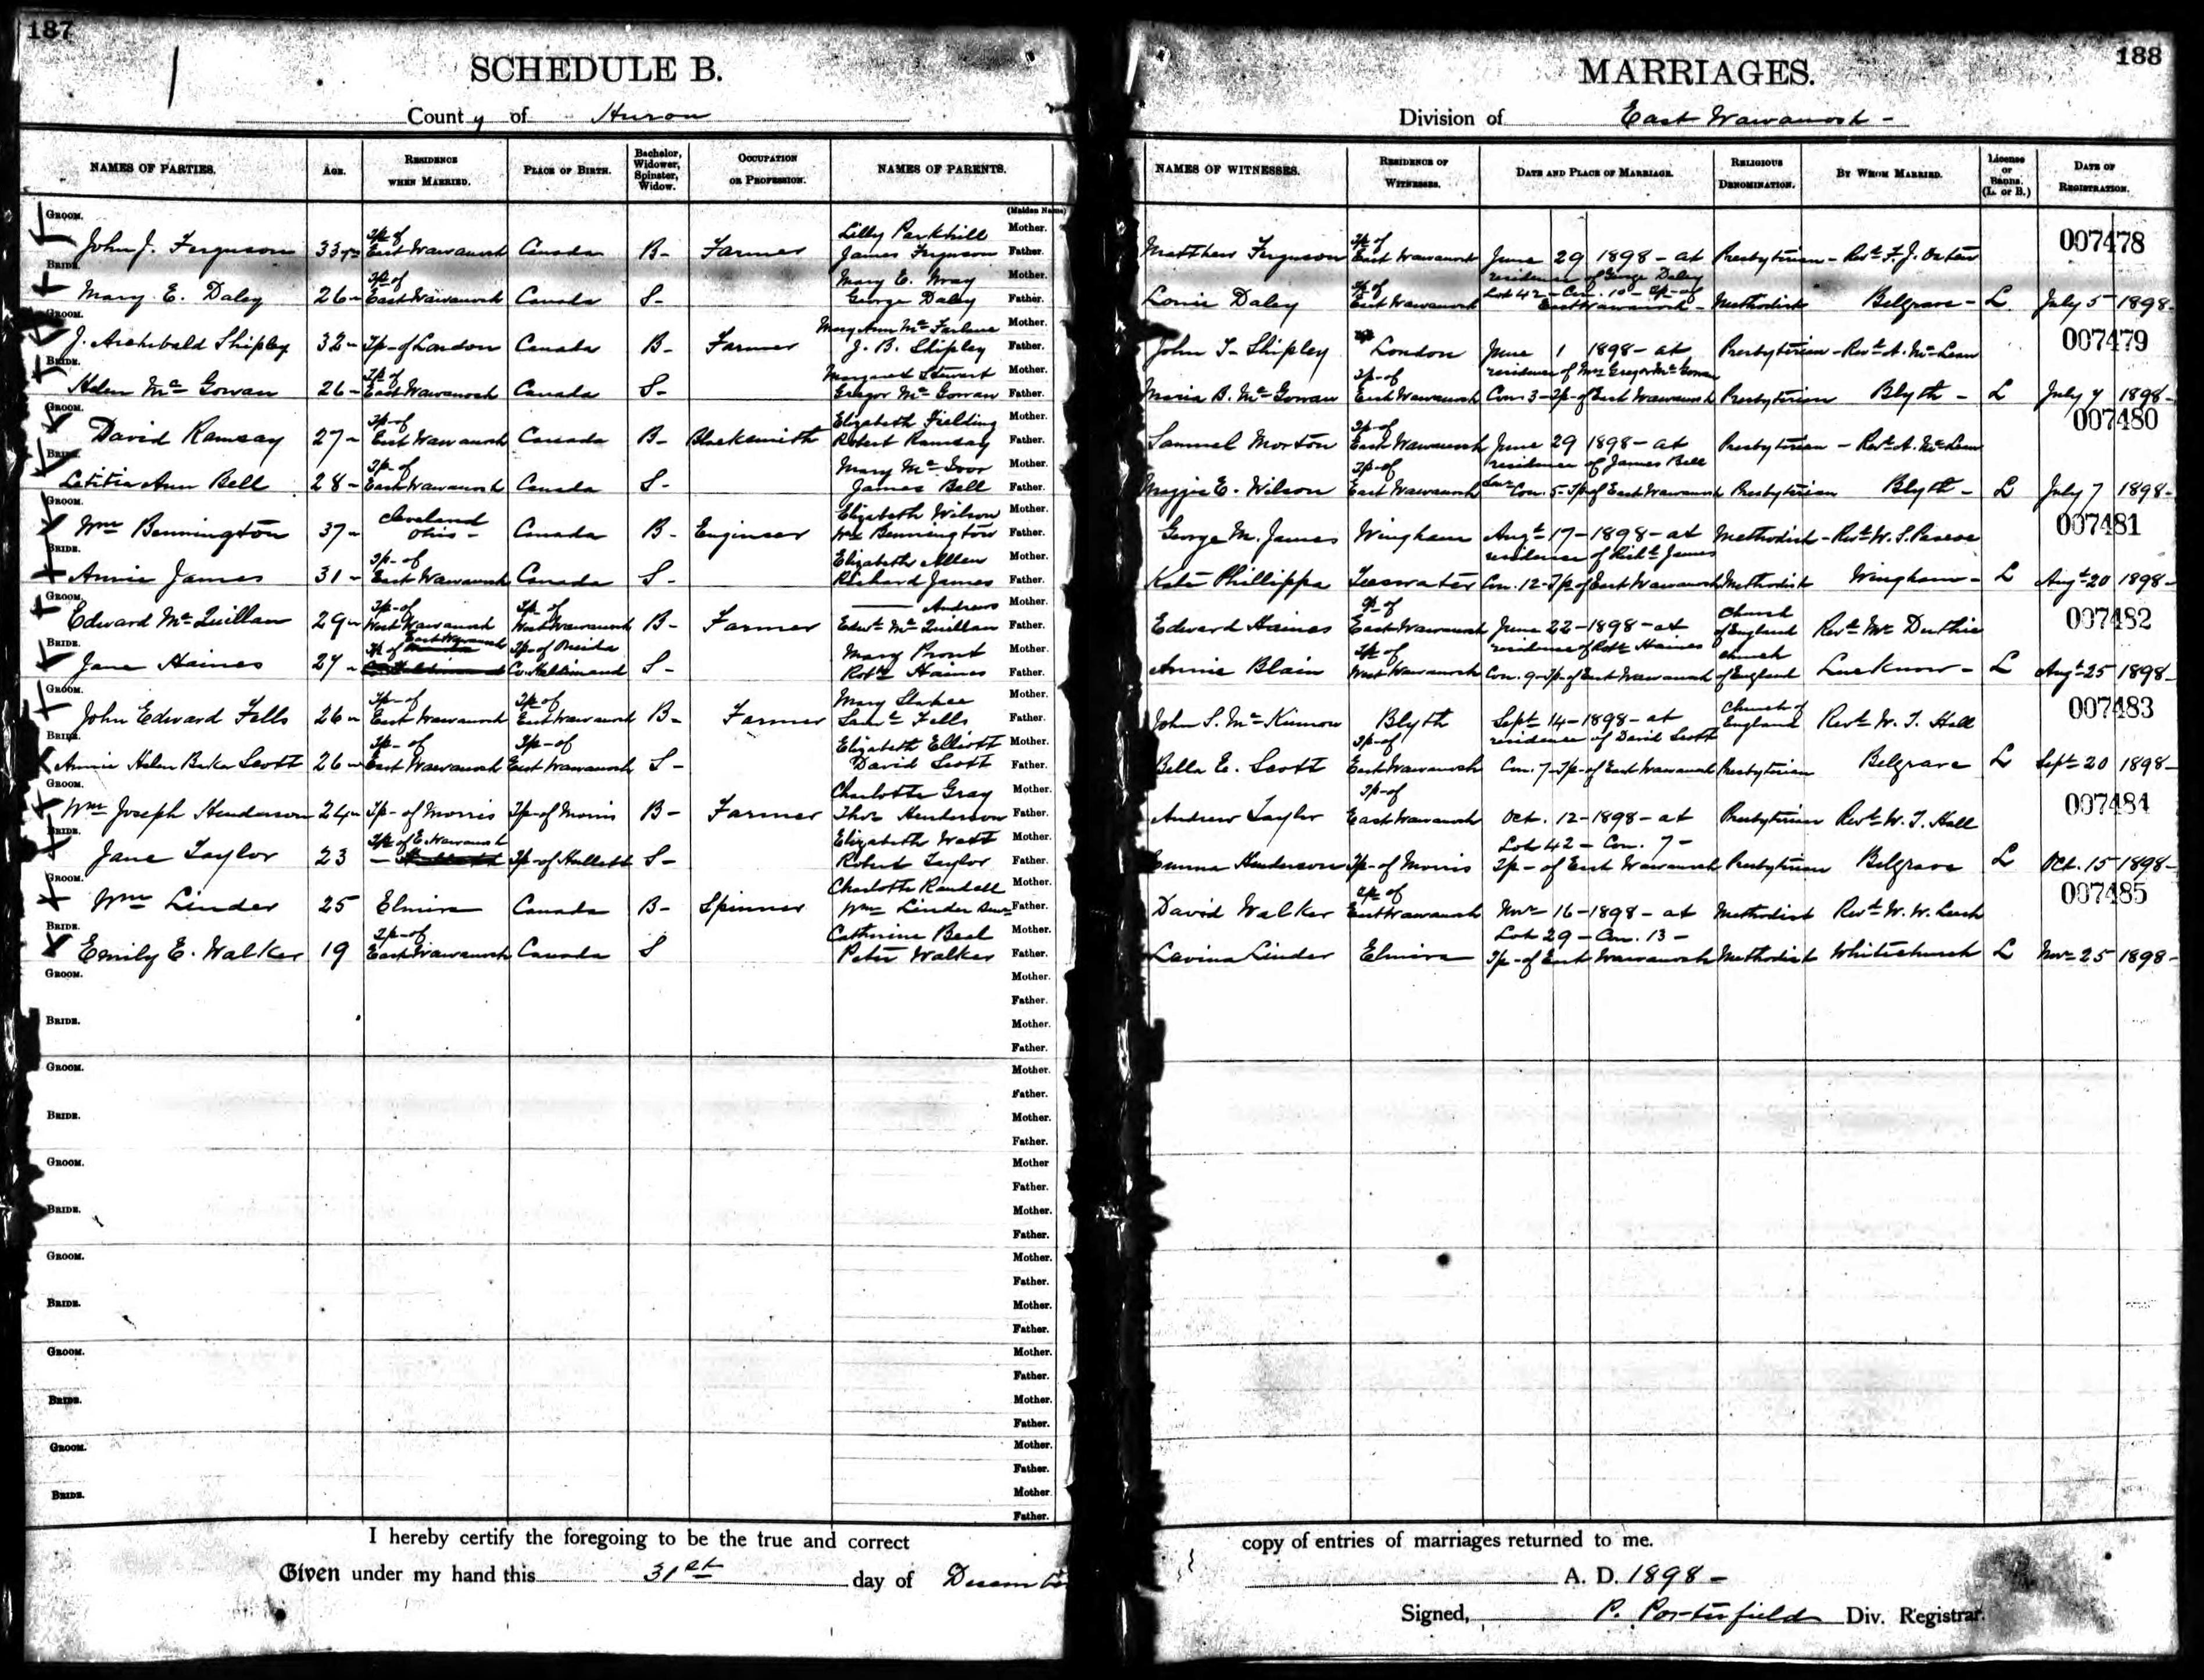 187
SCHEDULE B.
County of Huron
NAMES OF PARTIES. AGE. RESIDENCE WHEN MARRIED. PLACE OF BIRTH. Bachelor, Widower, Spinster, Widow. OCCUPATION OR PROFESSION. NAMES OF PARENTS.
(Maiden Name)
GROOM. Lilly Parkhill Mother.
John J. Ferguson 33 Tp of East Wawanosh Canada B- Farmer James Ferguson Father.
BRIDE. Mary E. Wray Mother.
Mary E. Daley 26 Tp of East Wawanosh Canada S- George Daley Father.
GROOM. Mary Ann McFarlane Mother.
J. Archibald Shipley 32 Tp-of London Canada B- Farmer J. B. Shipley Father.
BRIDE. Margaret Stewart Mother.
Helen McGowan 26- Tp of East Wawanosh Canada S- Gregor McGowan Father.
GROOM. Elizabeth Fielding Mother.
David Ramsay 27- Tp-of East Wawanosh Canada B- Blacksmith Robert Ramsay Father.
BRIDE. Mary Mother.
Letitia Ann Bell 28- Tp-of East Wawanosh Canada S- James Bell Father.
GROOM. Elizabeth Wilson Mother.
Wm Bennington 37- Cleveland Ohio- Canada B- Engineer Wm Bennington Father.
BRIDE. Elizabeth Allen Mother.
Annie James 31- Tp-of East Wawanosh Canada S- Richard James Father.
GROOM. —— Andrews Mother.
Edward McQuillan 29 Tp-of West Wawanosh Tp of West Wawanosh B- Farmer Edwd McQuillan Father.
BRIDE. Mary Pront Mother.
Jane Haines 27 Tp of East Wawanosh Tp-of Co. Haldimand S- Robt Haines Father.
GROOM. Mary Mother.
John Edward Fells 26 Tp-of East Wawanosh Tp of East Wawanosh B- Farmer Fells Father.
BRIDE. Elizabeth Elliott Mother.
Annie Helen Barker Scott 26 Tp-of East Wawanosh Tp-of East Wawanosh S- David Scott Father.
GROOM. Charlotte Gray Mother.
Wm Joseph Henderson 24 Tp-of Morris Tp-of Morris B- Farmer Thos Henderson Father.
BRIDE. Elizabeth Watt Mother.
Jane Taylor 23 Tp of E. Wawanosh Tp-of Hullett S- Robert Taylor Father.
GROOM. Charlotte Randall Mother.
Wm Linder 25 Elmira Canada B- Spinner Wm Linder Senr Father.
BRIDE. Catherine Beal Mother.
Emily E. Walker 19 Tp-of East Wawanosh Canada S Peter Walker Father.
GROOM. Mother.
Father.
BRIDE. Mother.
Father.
GROOM. Mother.
Father.
BRIDE. Mother.
Father.
GROOM. Mother
Father.
BRIDE. Mother.
Father.
GROOM. Mother.
Father.
BRIDE. Mother.
Father.
GROOM. Mother.
Father.
BRIDE. Mother.
Father.
GROOM. Mother.
Father.
BRIDE. Mother.
Father.
I hereby certify the foregoing to be the true and correct
Given under my hand this 31st day of December
188
MARRIAGES.
Division of East Wawanosh-
NAMES OF WITNESSES. RESIDENCE OF WITNESSES. DATE AND PLACE OF MARRIAGE. RELIGIOUS DENOMINATION. BY WHOM MARRIED. License or Banns. (L. or B.) DATE OF REGISTRATION.
007478
Matthew Ferguson Tp of East Wawanosh June 29 1898- at Presbyterian- Revd F. J. Oaten
residence of George Daley
Lonie Daley Tp of East Wawanosh Lot 42- Con. 10- Tp-of East Wawanosh- Methodist Belgrave- L. July 5 1898-
007479
John T. Shipley London June 1 1898- at Presbyterian- Revd A. McLean
residence of Mrs Gregor McGowan
Maria B. McGowan Tp-of East Wawanosh Con 3-Tp-of East Wawanosh Presbyterian Blyth- L July 7 1898-
007480
Samuel Morton Tp-of East Wawanosh June 29 1898- at Presbyterian- Revd A. McLean
residence of James Bell
Maggie E. Wilson Tp-of East Wawanosh Con. 5-Tp of East Wawanosh Presbyterian Blyth- L July 7 1898-
007481
George M. James Wingham Augt 17-1898- at Methodist- Revd W. S. Pascoe
residence of Richd James
Kate Phillippa Teeswater Con. 12-Tp of East Wawanosh Methodist Wingham- L Augt 20 1898-
007482
Edward Haines Tp-of East Wawanosh June 22-1898- at Church of England Revd Mr Duthie
residence of Robt Haines
Annie Blain Tp of West Wawanosh Con. 9-Tp-of East Wawanosh Church of England Lucknow- L Augt 25 1898-
007483
John S. McKinnon Blyth Sept 14-1898- at Church of England Revd W. T. Hall
residence of David Scott
Bella E. Scott Tp-of East Wawanosh Con. 7-Tp-of East Wawanosh Presbyterian Belgrave L Sept 20 1898-
007484
Andrew Taylor Tp-of East Wawanosh Oct. 12-1898- at Presbyterian Revd W. T. Hall
Lot 42- Con. 7-
Emma Henderson Tp-of Morris Tp- of East Wawanosh Presbyterian Belgrave L Oct. 15 1898-
007485
David Walker Tp of East Wawanosh Nov 16-1898- at Methodist Revd W. W. Leech
Lot 29- Con. 13-
Lavina Linder Elmira Tp-of East Wawanosh Methodist Whitechurch L Nov 25 1898-
copy of entries of marriages returned to me.
A. D. 1898-
Signed, P. Porterfield Div. Registrar.